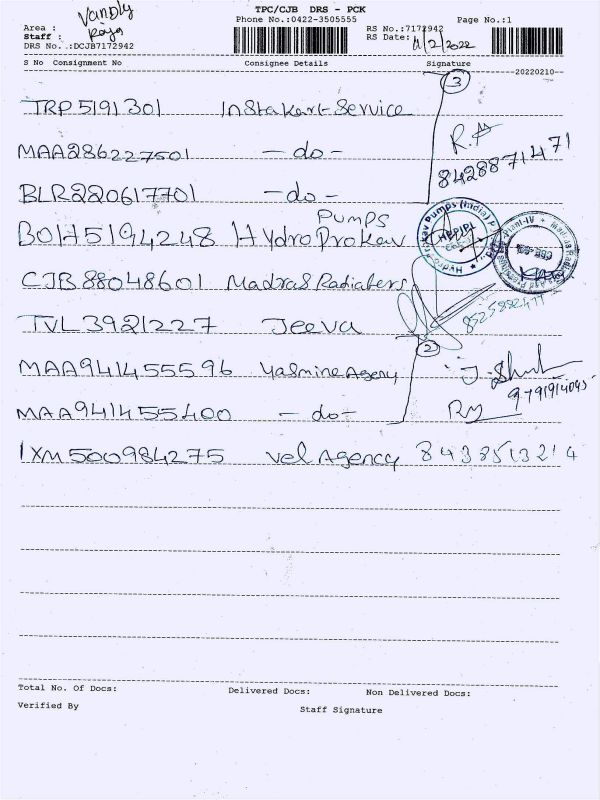 TPC/CJB DRS - PCK
Phone No.:0422-3505555 Page No.:1
Area : Vandly
Staff : Raja
RS No.:7172942
RS Date: 11/2/2022
DRS No. :DCJB7172942
S No Consignment No Consignee Details Signature
20220210
3
TRP5191301 Instakart Service
R.A
8428871471
MAA286227501 -do-
BLR220617701 -do-
Pumps
BOH5194248 Hydro Prokav
HPPIPL
CJB88048601 Madras Radiaters
TVL3921227 Jeeva
2
MAA941455596 Yasmine Agency
9791914045
MAA941455400 -do-
IXM500984275 Vel Agency 8438513214
Total No. Of Docs: Delivered Docs: Non Delivered Docs:
Verified By Staff Signature